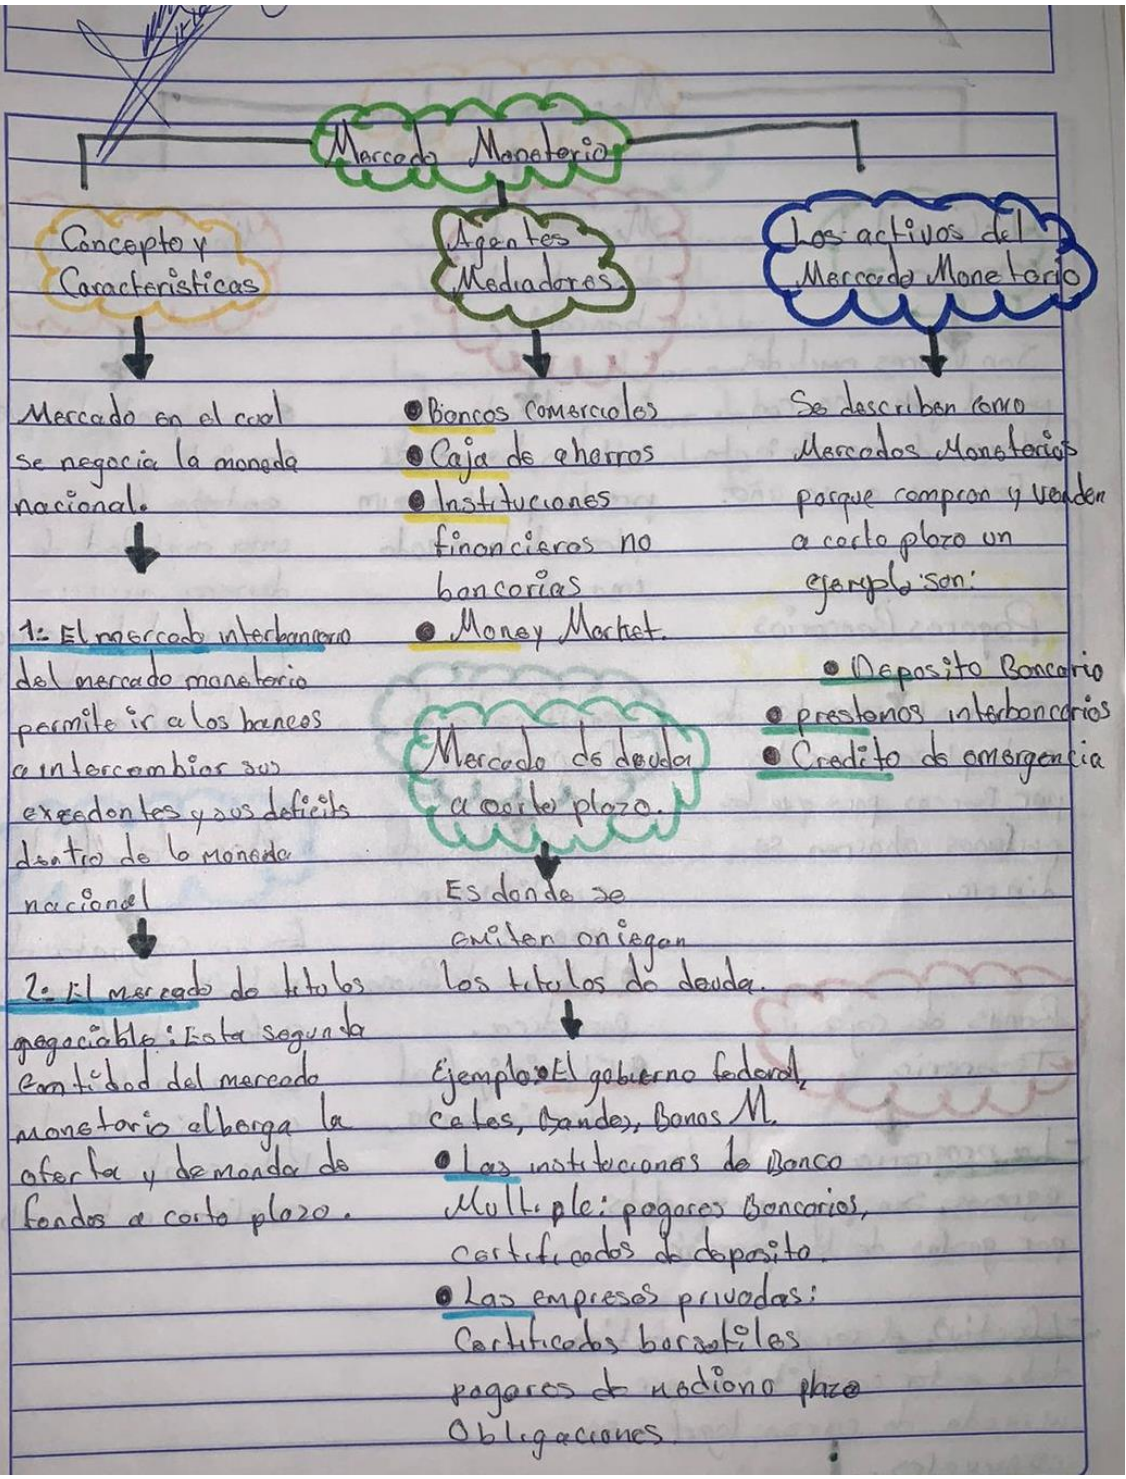 Mercado Monetario
Concepto y
Caracteristicas
Mercado en el cual
se negocia la moneda
nacional.
1: El mercado interbancario
del mercado monetario
permite ir a los bancos
a intercambiar sus
excedentes y sus deficits
dentro de la moneda
nacional
2: El mercado de titulos
negociable: Esta segunda
Cantidad del mercado
monetario alberga la
oferta y demanda de
fondos a corto plazo.
Agentes
Mediadores
Bancos comerciales
Caja de ahorros
Instituciones
financieros no
bancarias
Money Market.
Mercado de deuda
a corto plazo.
Es donde se
emiten
los titulos de deuda.
Ejemplo: El gobierno federal,
cetes, Bandes, Bonos M.
Las instituciones de Banco
Multiple: pagares Bancarios,
certificados de deposito.
Las empresas privadas:
Certificados
pagares de mediano plazo
Obligaciones
Los activos del
Mercado Monetario
Se describen como
Mercados Monetarios
porque compran y venden
a corto plazo un
ejemplo son:
Deposito Bancario
prestamos interbancarios
Credito de emergencia